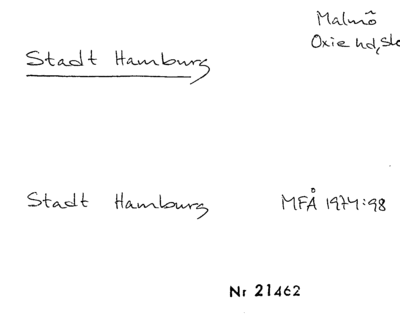 Malmö
Oxie hd, Sk
Stadt Hamburg
Stadt Hamburg MFÅ 1974:98
Nr 21462